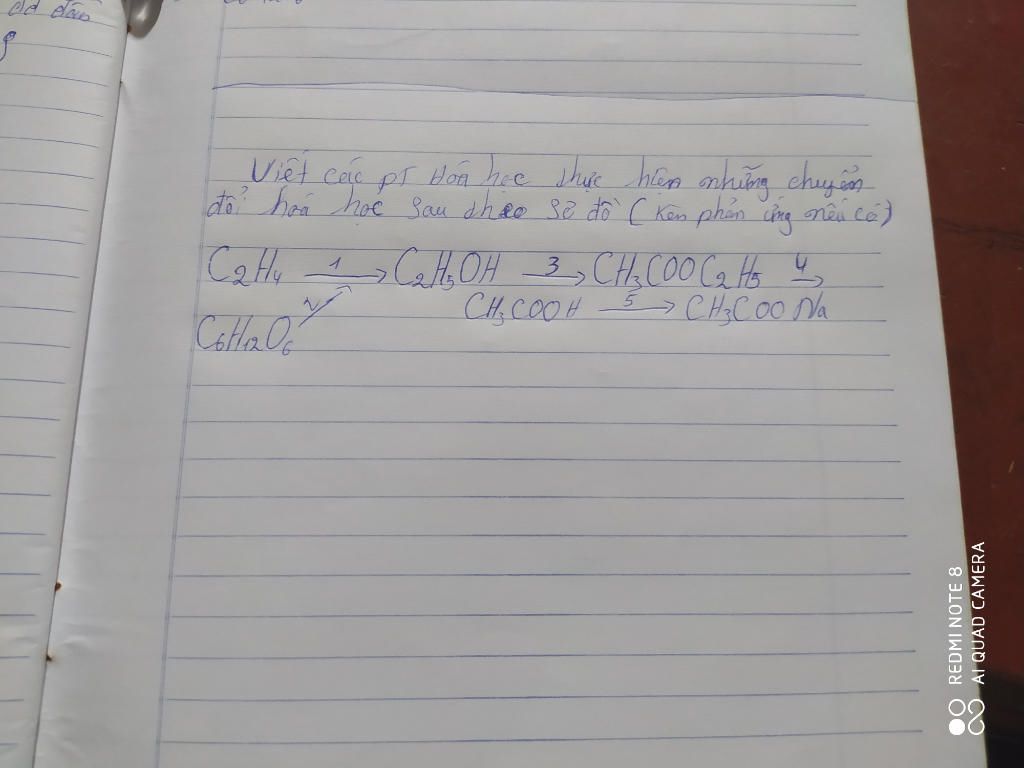 dd đầu
Viết các PT Hoá học thực hiện những chuyển
đổi hoá học sau theo sơ đồ (kèm phản ứng nếu có)
C₂H₄ —1→ C₂H₅OH —3→ CH₃COOC₂H₅ —4→
2↗ CH₃COOH —5→ CH₃COONa
C₆H₁₂O₆
REDMI NOTE 8
AI QUAD CAMERA